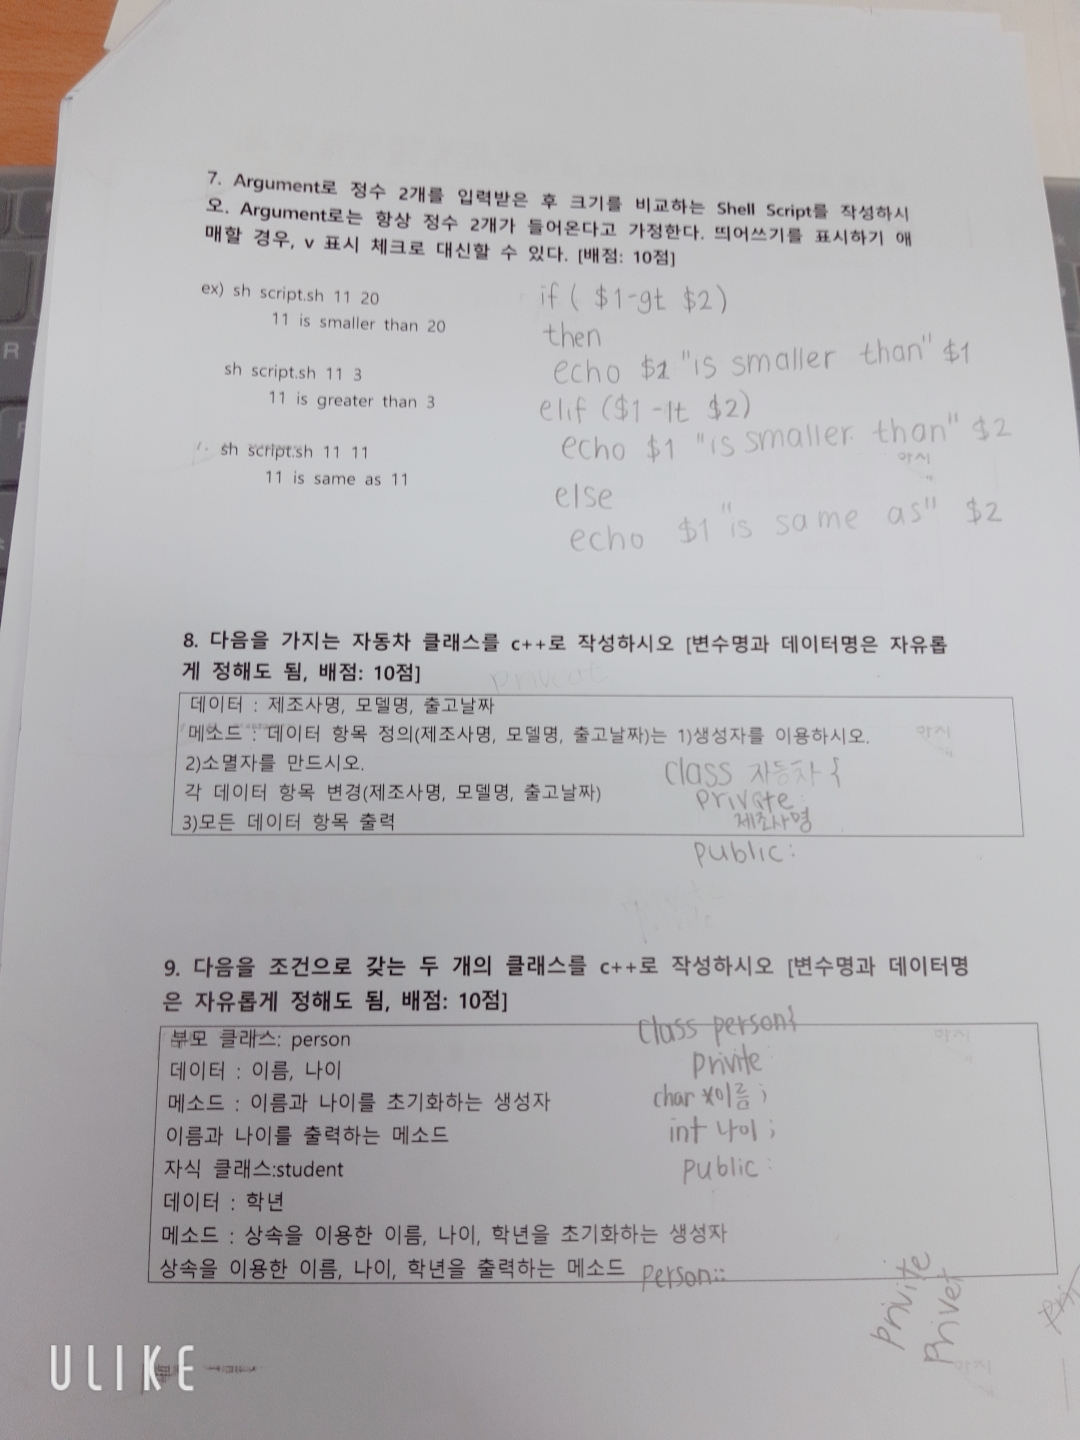 7. Argument로 정수 2개를 입력받은 후 크기를 비교하는 Shell Script를 작성하시
오. Argument로는 항상 정수 2개가 들어온다고 가정한다. 띄어쓰기를 표시하기 애
매할 경우, v 표시 체크로 대신할 수 있다. [배점: 10점]
ex) sh script.sh 11 20
11 is smaller than 20
sh script.sh 11 3
11 is greater than 3
sh script.sh 11 11
11 is same as 11
if ( $1-gt $2)
then
echo $2 "is smaller than" $1
elif ($1 -lt $2)
echo $1 "is smaller than" $2
else
echo $1 "is same as" $2
8. 다음을 가지는 자동차 클래스를 c++로 작성하시오 [변수명과 데이터명은 자유롭
게 정해도 됨, 배점: 10점]
데이터 : 제조사명, 모델명, 출고날짜
메소드 : 데이터 항목 정의(제조사명, 모델명, 출고날짜)는 1)생성자를 이용하시오.
2)소멸자를 만드시오.
각 데이터 항목 변경(제조사명, 모델명, 출고날짜)
3)모든 데이터 항목 출력
class 자동차 {
private:
제조사명
public:
9. 다음을 조건으로 갖는 두 개의 클래스를 c++로 작성하시오 [변수명과 데이터명
은 자유롭게 정해도 됨, 배점: 10점]
부모 클래스: person
데이터 : 이름, 나이
메소드 : 이름과 나이를 초기화하는 생성자
이름과 나이를 출력하는 메소드
자식 클래스:student
데이터 : 학년
메소드 : 상속을 이용한 이름, 나이, 학년을 초기화하는 생성자
상속을 이용한 이름, 나이, 학년을 출력하는 메소드
class person{
privite:
char *이름;
int 나이;
public:
person::
privite
privet
ULIKE